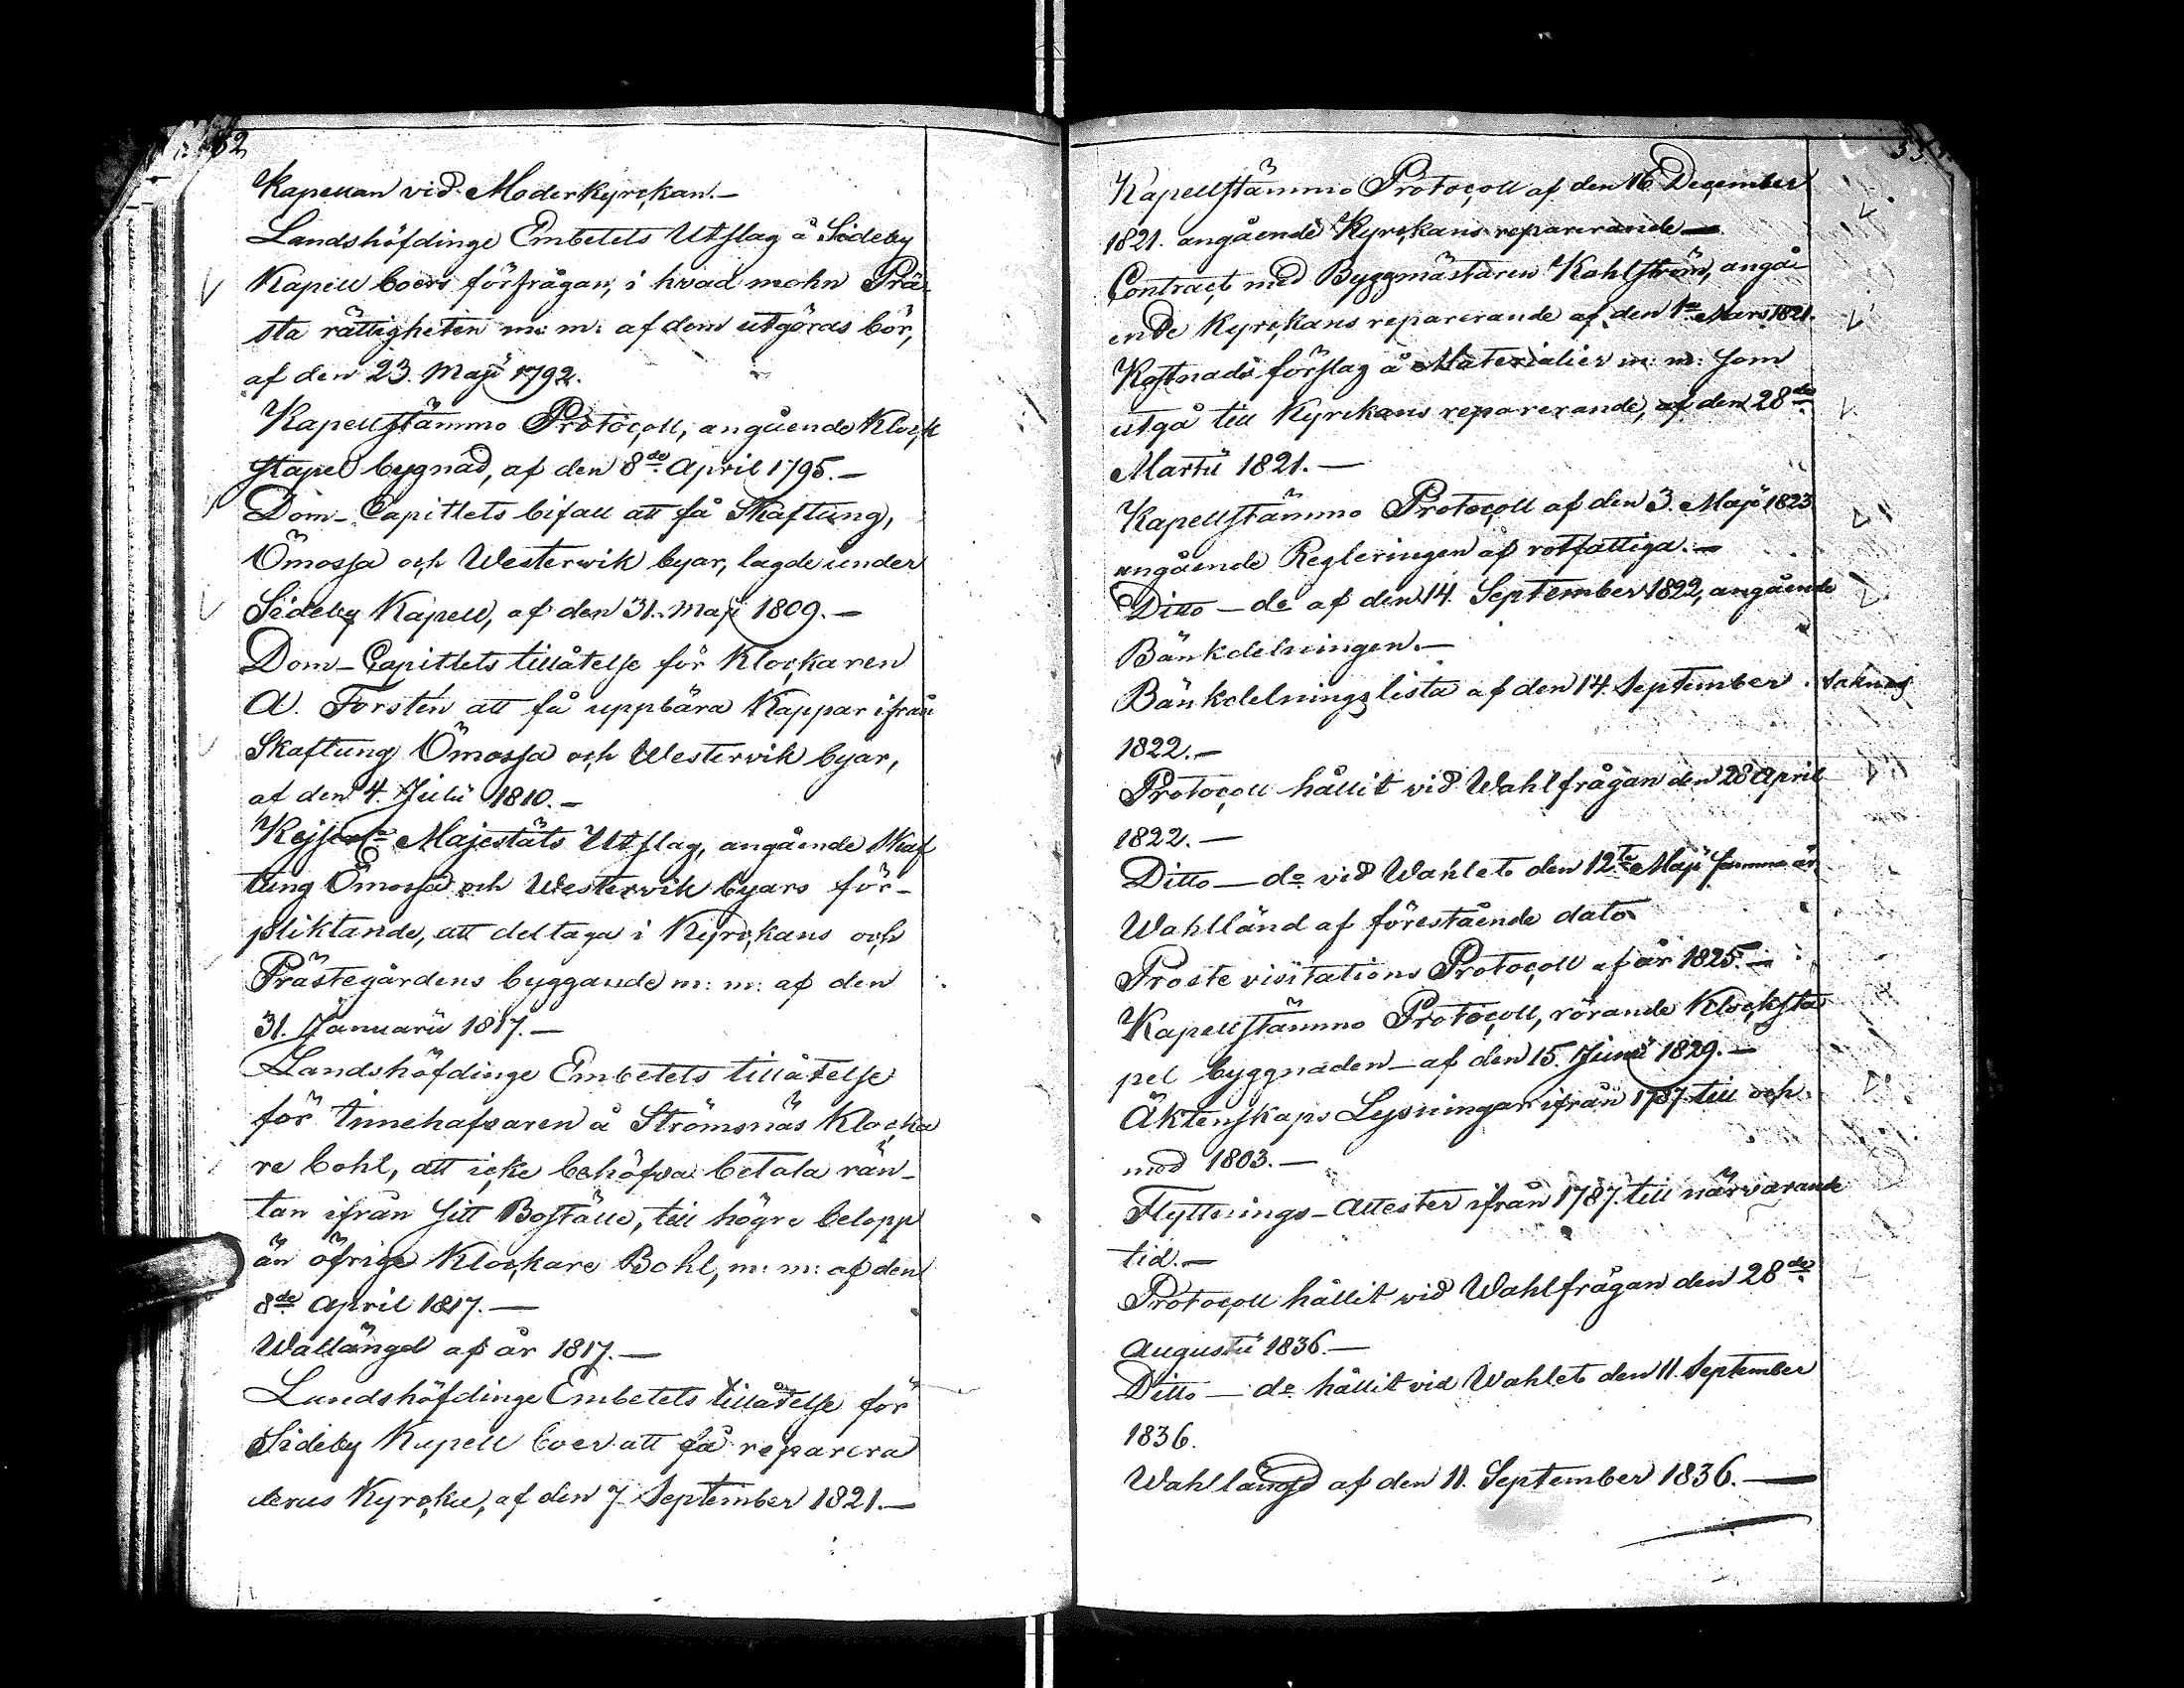 82
Kapellan vid Moderkyrckan.—
Landshöfdinge Embetets Utslag å Sideby
Kapell boers förfrågan, i hvad mohn Prä-
sta rättigheten m: m: af dem utgöras bör,
af den 23. Maji 1792.
Kapellstämmo Protocoll, angående Klock
stapel bygnad, af den 8de April 1795.—
Dom-Capitlets bifall att få Skaftung,
Ömossa och Westerwik byar, lagde under
Sideby Kapell, af den 31. Maji 1809.—
Dom-Capitlets tillåtelse för Klockaren
A. Forstén att få uppbära Kappar ifrån
Skaftung Ömossa och Westervik byar,
af den 4. Julii 1810.—
Majestäts Utslag, angående Skaf
tung Ömossa och Westervik byars för-
pliktande, att deltaga i Kyrckans och
Prästegårdens byggande m: m: af den
31. Januarii 1817.—
Landshöfdinge Embetets tillåtelse
för Innehafvaren å Strömsnäs Klocka
re bohl, att icke behöfva betala rän-
tan ifrån sitt Boställe, till högre belopp
än öfrige Klockare Bohl, m: m: af den
8de April 1817.—
Wallängd af år 1817.—
Landshöfdinge Embetets tillåtelse för
Sideby Kapell boer att få reparera
deras Kyrcka, af den 7 September 1821.—
Kapellstämmo Protocoll af den 16 December
1821. angående Kyrckans reparerande—
Contract med Byggmästaren Kahlström, angå-
ende Kyrckans reparerande af den 1a Mars 1821.
Kostnads förslag å Materialier m: m: som
utgå till Kyrckans reparerande, af den 28de
Martii 1821.—
Kapellstämmo Protocoll af den 3. Maji 1823
angående Regleringen af rotfattiga.—
Ditto—do af den 14. September 1822, angående
Bänkdelningen.—
Bänkdelningslista af den 14. September
1822.—
Protocoll hållit vid Wahlfrågan den 28 April
1822.—
Ditto—do vid Wahlet den 12te Maji samma år
Wahlländ af förestående dato
Proste visitations Protocoll af år 1825.—
Kapellstämmo Protocoll, rörande Klocksta
pel byggnaden—af den 15. Junii 1829.—
Äktenskaps Lysningar ifrån 1787 till och
med 1803.—
Flyttnings-Attester ifrån 1787. till närvarande
tid.—
Protocoll hållit vid Wahlfrågan den 28de
Augusti 1836.—
Ditto—do hållit vid Wahlet den 11. September
1836.
Wahllängd af den 11. September 1836.—